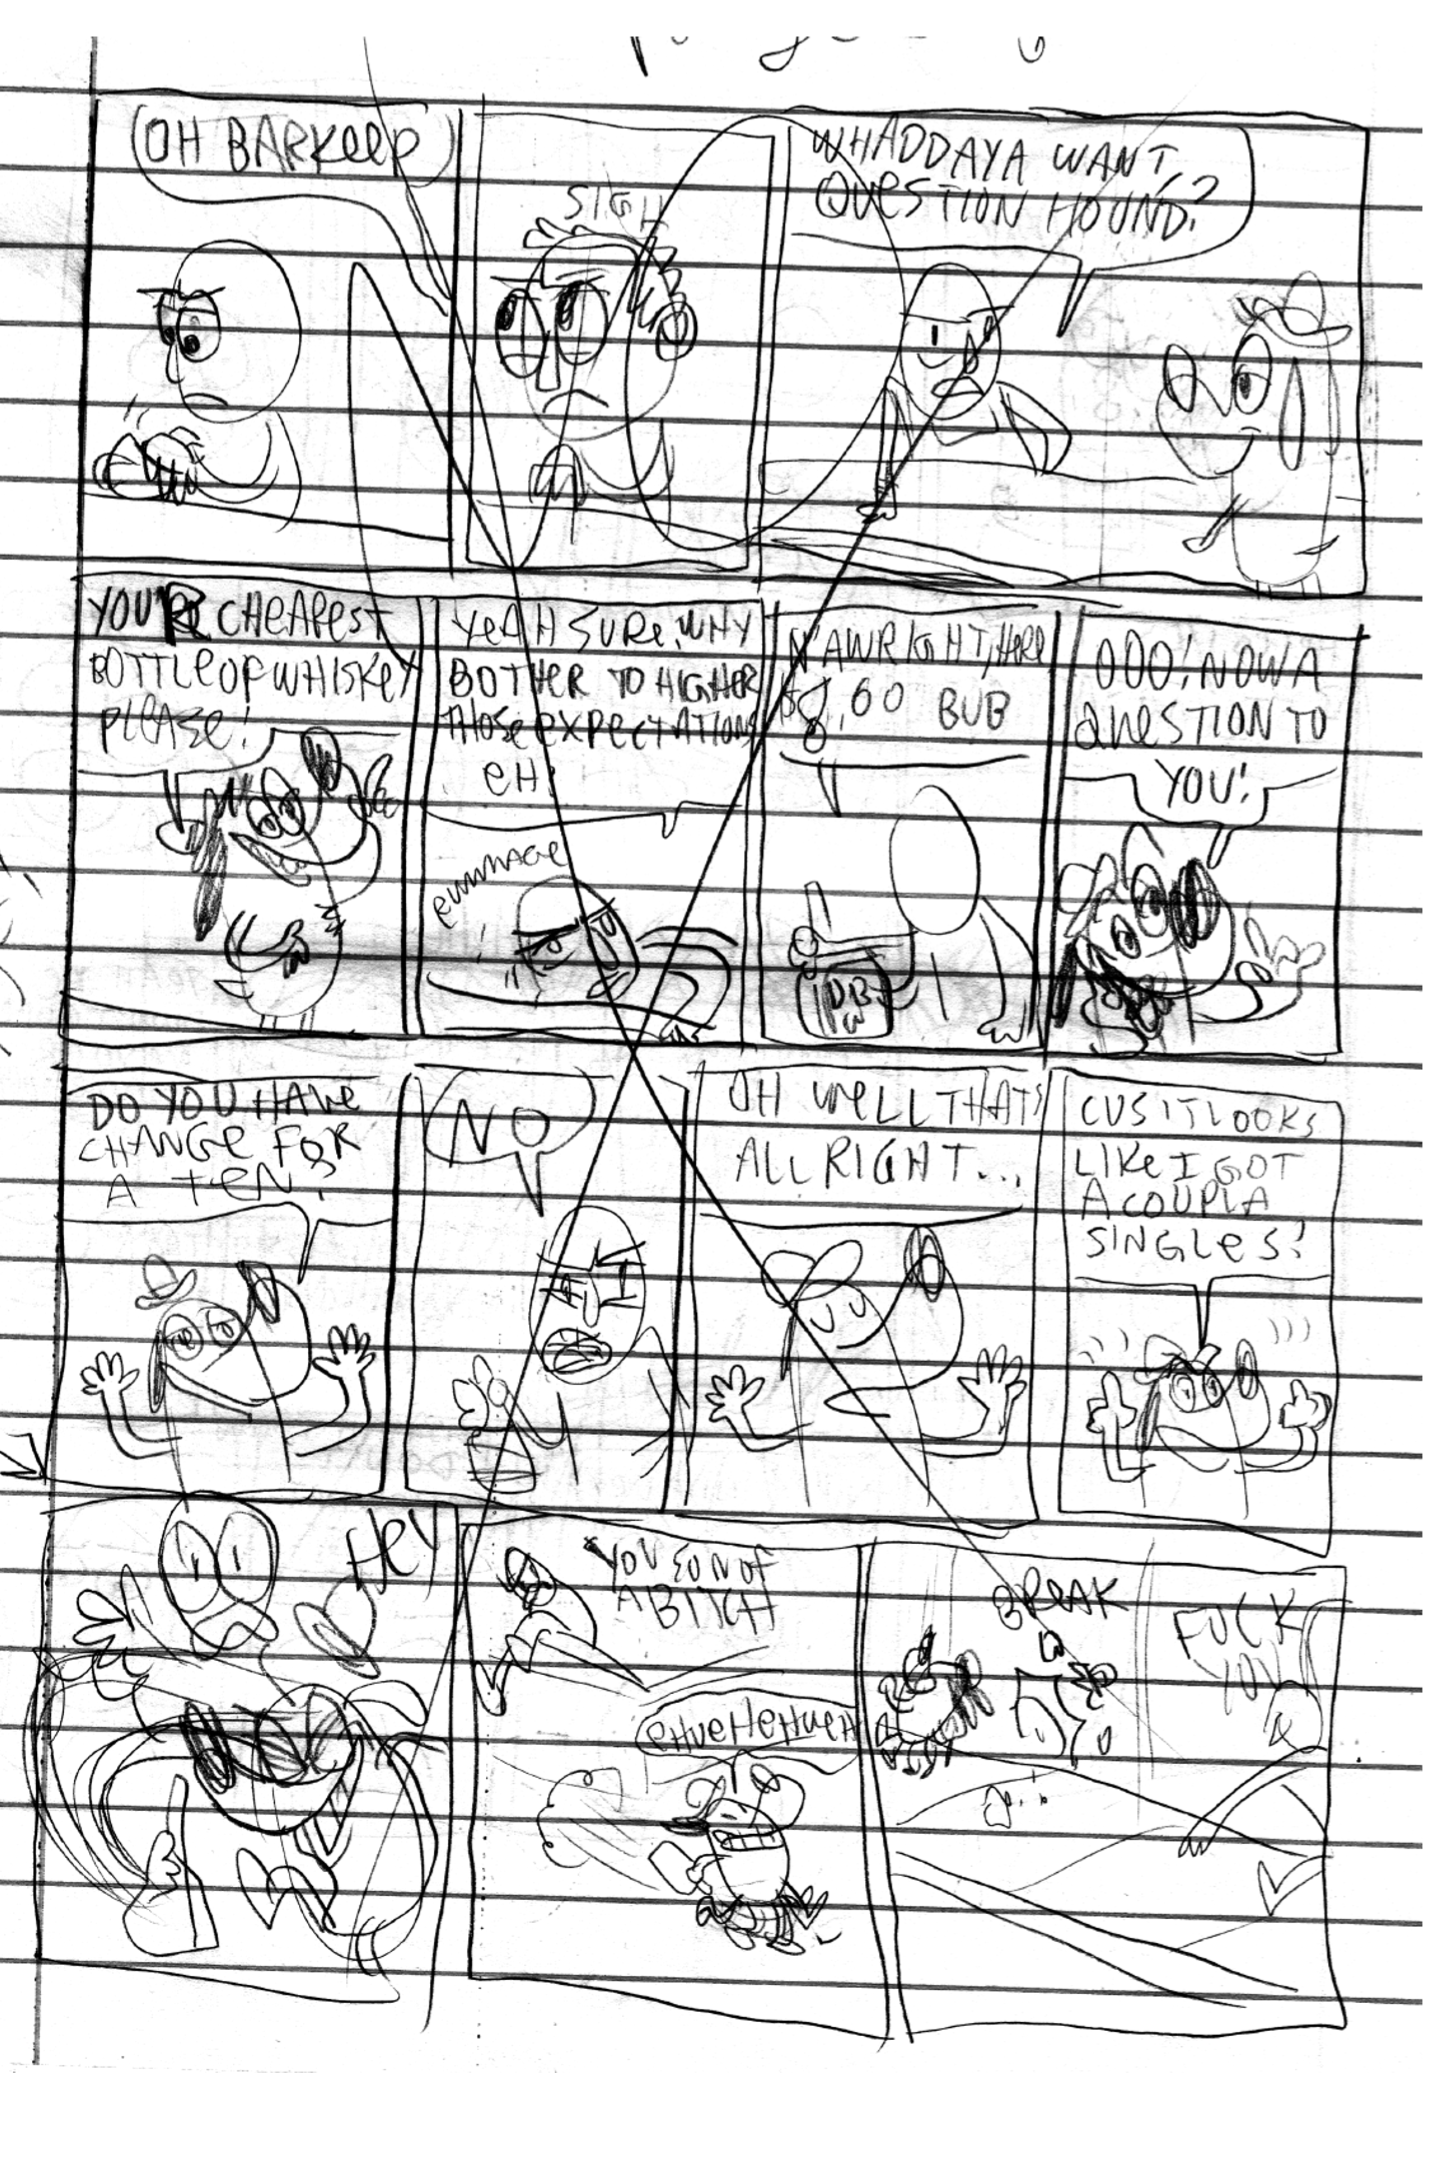 OH BARKEEP
SIGH
WHADDAYA WANT,
QUESTION HOUND?
YOU'RE CHEAPEST
BOTTLE OF WHISKEY
PLEASE!
YEAH SURE, WHY
BOTHER TO HIGHER
THOSE EXPECTATIONS
EH?
RUMMAGE
N'AWRIGHT, HERE
GO BUB
OOO! NOW A
QUESTION TO
YOU!
DO YOU HAVE
CHANGE FOR
A TEN?
NO
OH WELL THATS
ALL RIGHT...
CUS IT LOOKS
LIKE I GOT
A COUPLA
SINGLES!
HEY
YOU SON OF
A BITCH
EHUEHEHUEH
BREAK
FUCK
YOU